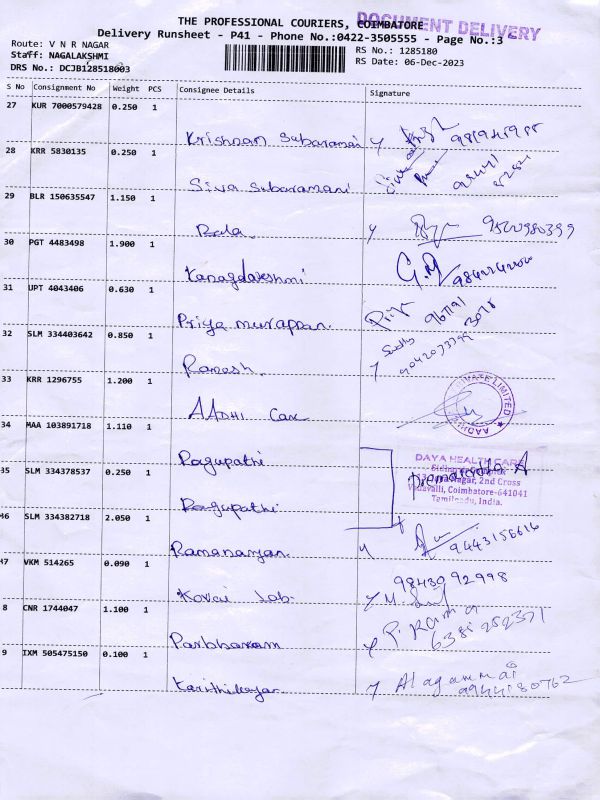 THE PROFESSIONAL COURIERS, COIMBATORE
DOCUMENT DELIVERY
Delivery Runsheet - P41 - Phone No.:0422-3505555 - Page No.:3
Route: V N R NAGAR
Staff: NAGALAKSHMI
DRS No.: DCJB128518003
RS No.: 1285180
RS Date: 06-Dec-2023
S No Consignment No Weight PCS Consignee Details Signature
27 KUR 7000579428 0.250 1
Krishnan Subaramai
28 KRR 5830135 0.250 1
Siva Subaramani
29 BLR 150635547 1.150 1
Bala 9500980399
30 PGT 4483498 1.900 1
G.M
31 UPT 4043406 0.630 1
Priya murappan Priya
32 SLM 334403642 0.850 1
Ramesh
33 KRR 1296755 1.200 1
AADHI Care
34 MAA 103891718 1.110 1
Ragupathi
DAYA HEALTH CARE
Nagar, 2nd Cross
Vadavalli, Coimbatore-641041
Tamilnadu, India.
35 SLM 334378537 0.250 1
Ragupathi
46 SLM 334382718 2.050 1
Ramanarayan 9443156616
47 VKM 514265 0.090 1
Kovai Lab 98430 92998
8 CNR 1744047 1.100 1
Parbhavam P. Rama
6381 282371
9 IXM 505475150 0.100 1
Alagammai